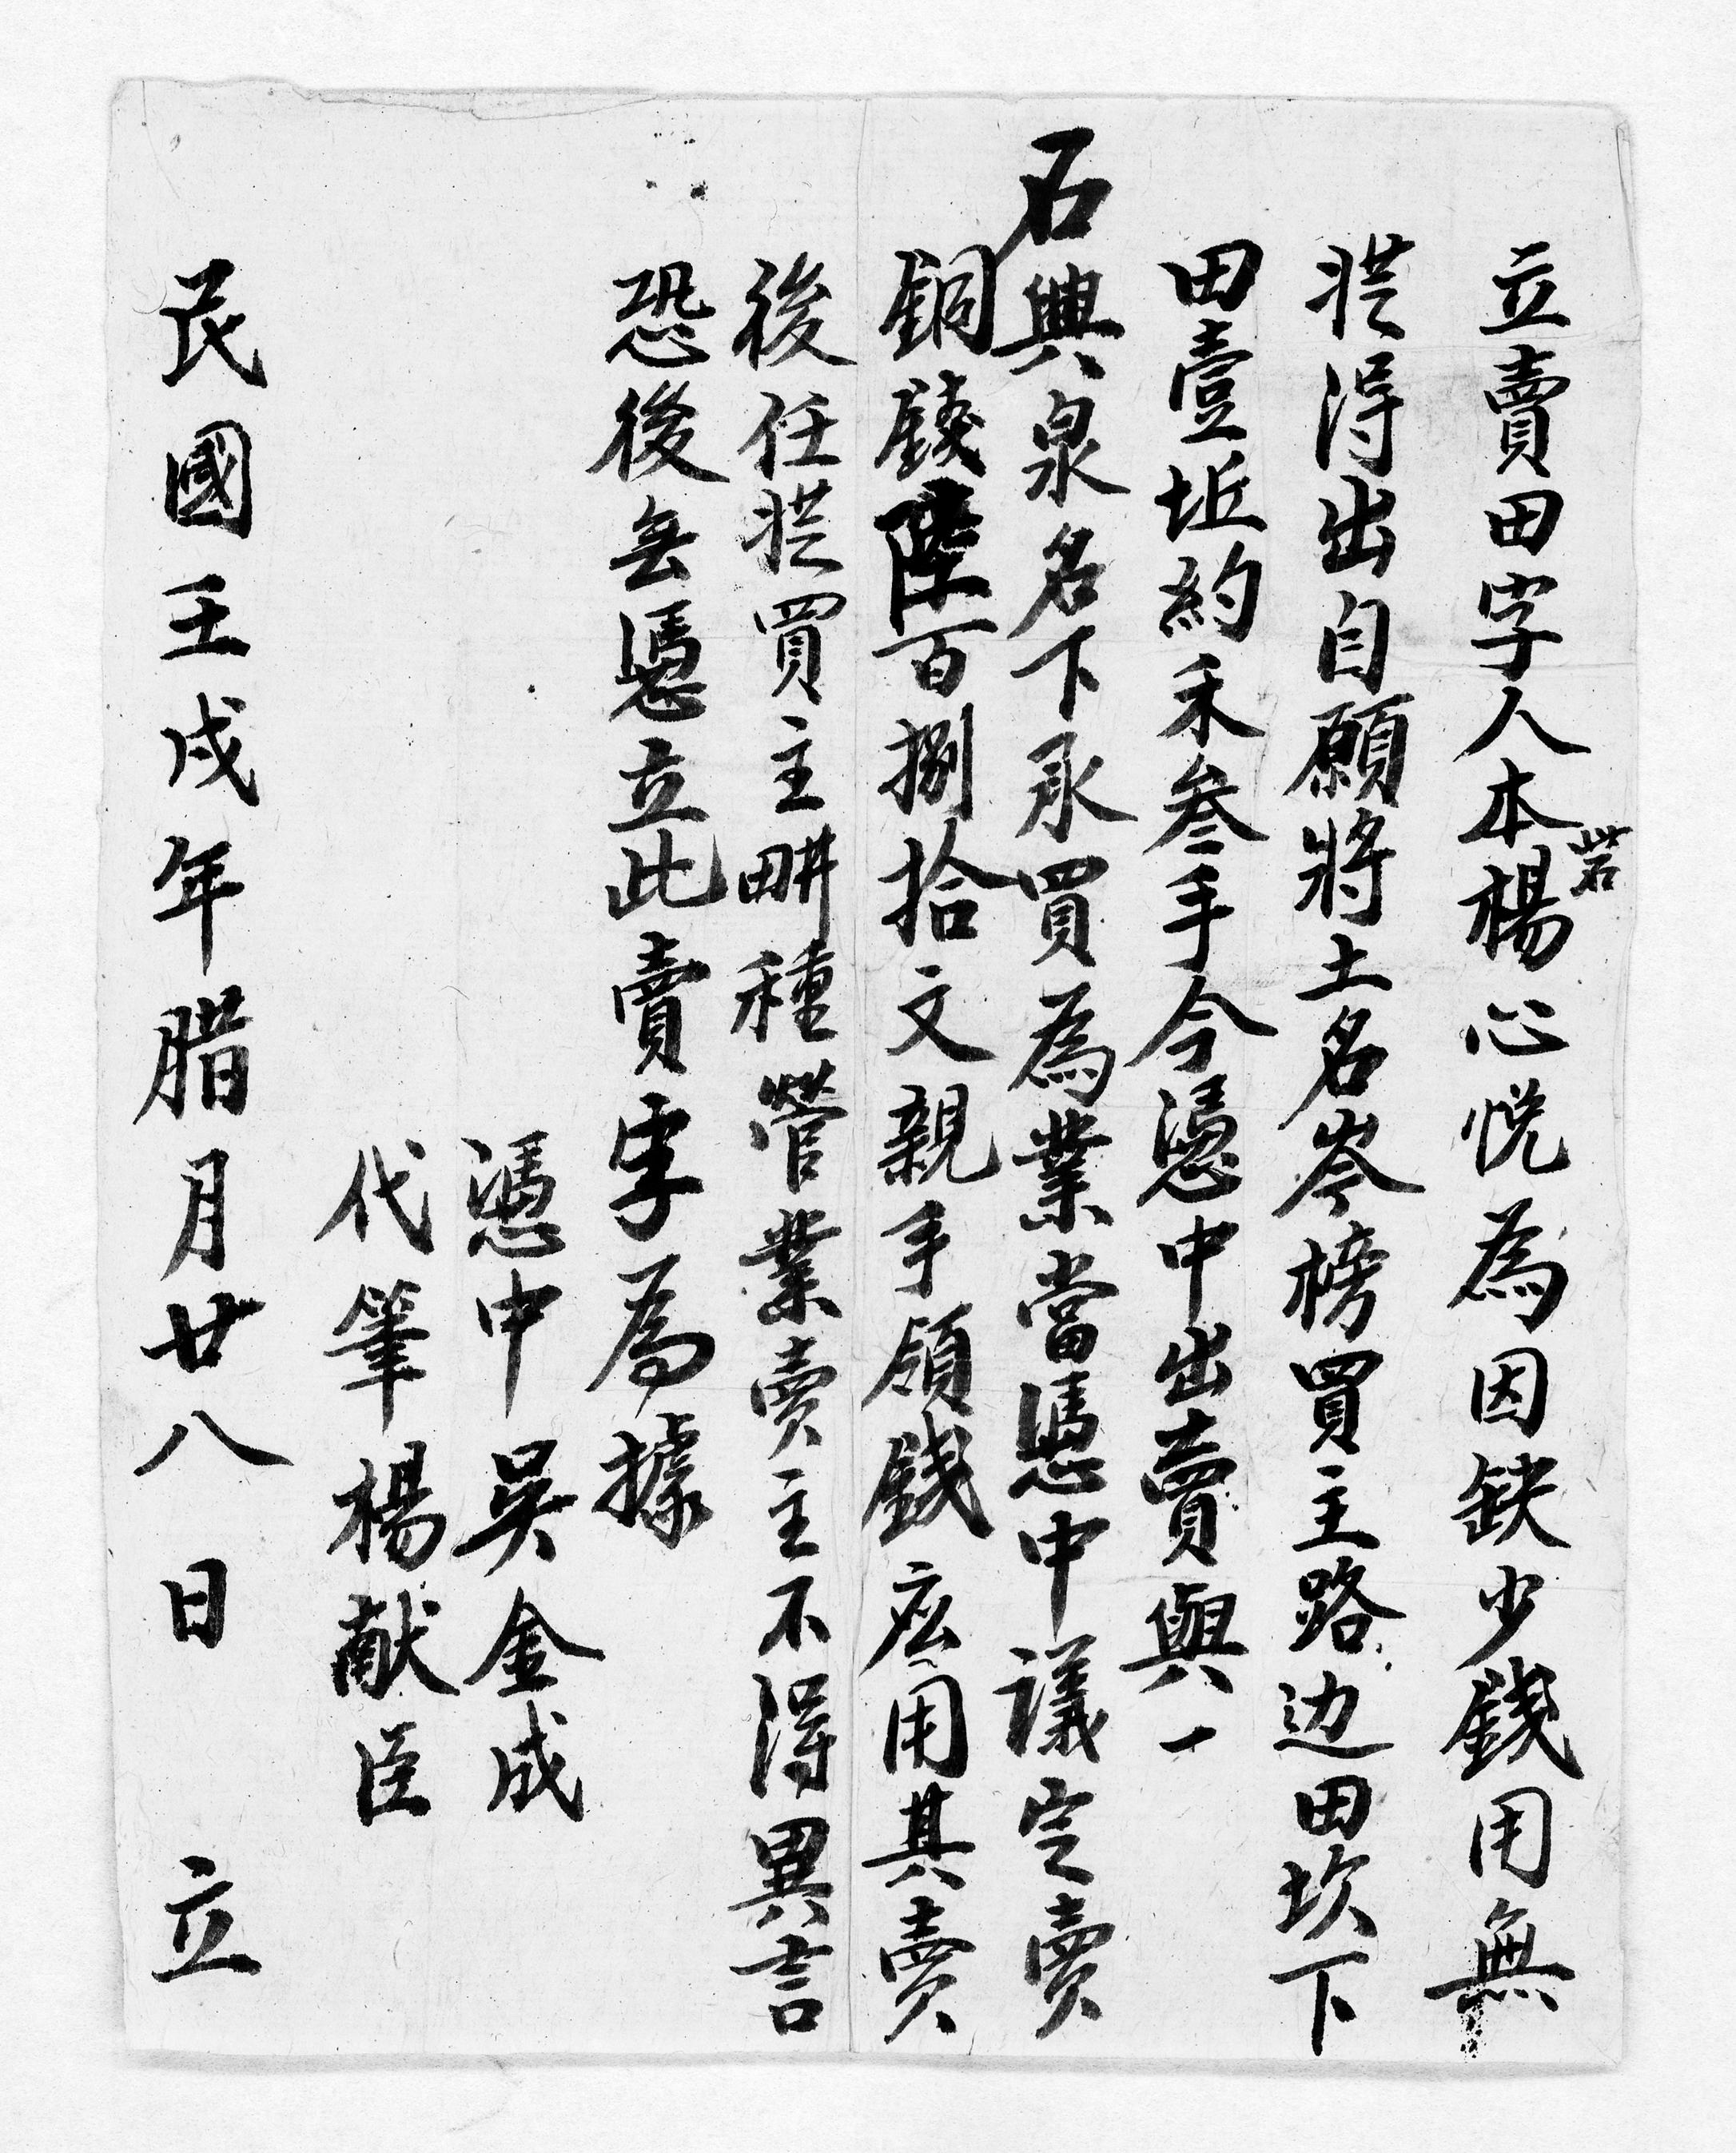 立賣田字人本砦楊心悅為因缺少錢用無
𢓅得出自願將土名岑榜買主路边田坎下
田壹坵約禾叄手今憑中出賣與一
石興泉名下承買為業當憑中議定賣
銅錢陸百捌拾文親手領錢应用其賣
後任𢓅買主畊種營業賣主不得異言
恐後無憑立此賣字為據
憑中吳金成
代筆楊献臣
民國壬戌年腊月廿八日 立